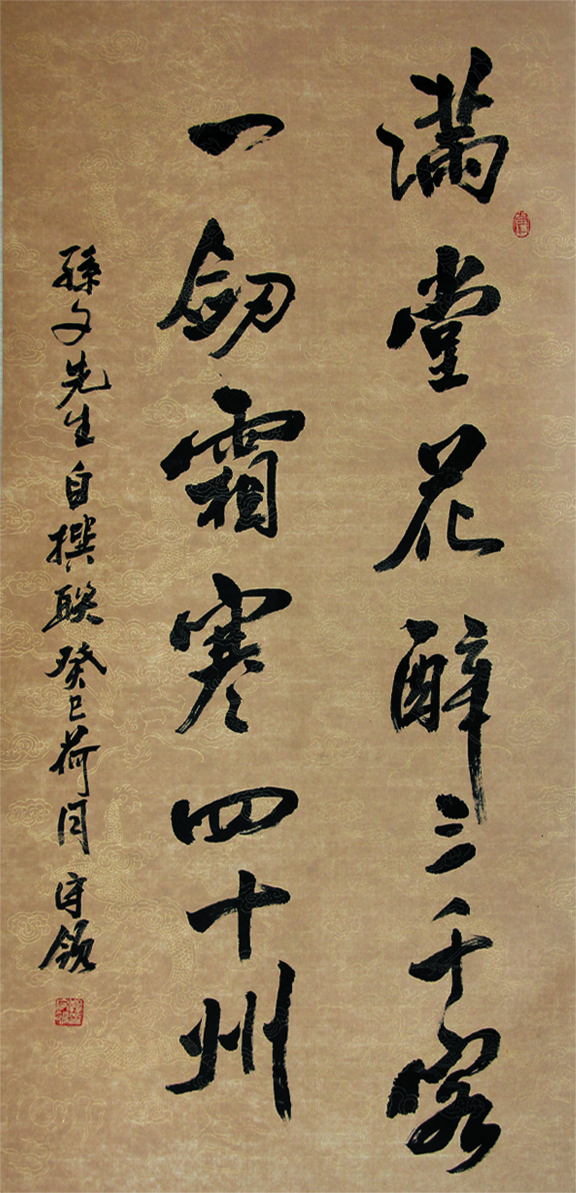 满堂花醉三千客
一剑霜寒四十州
孫文先生自撰联癸巳荷月守领